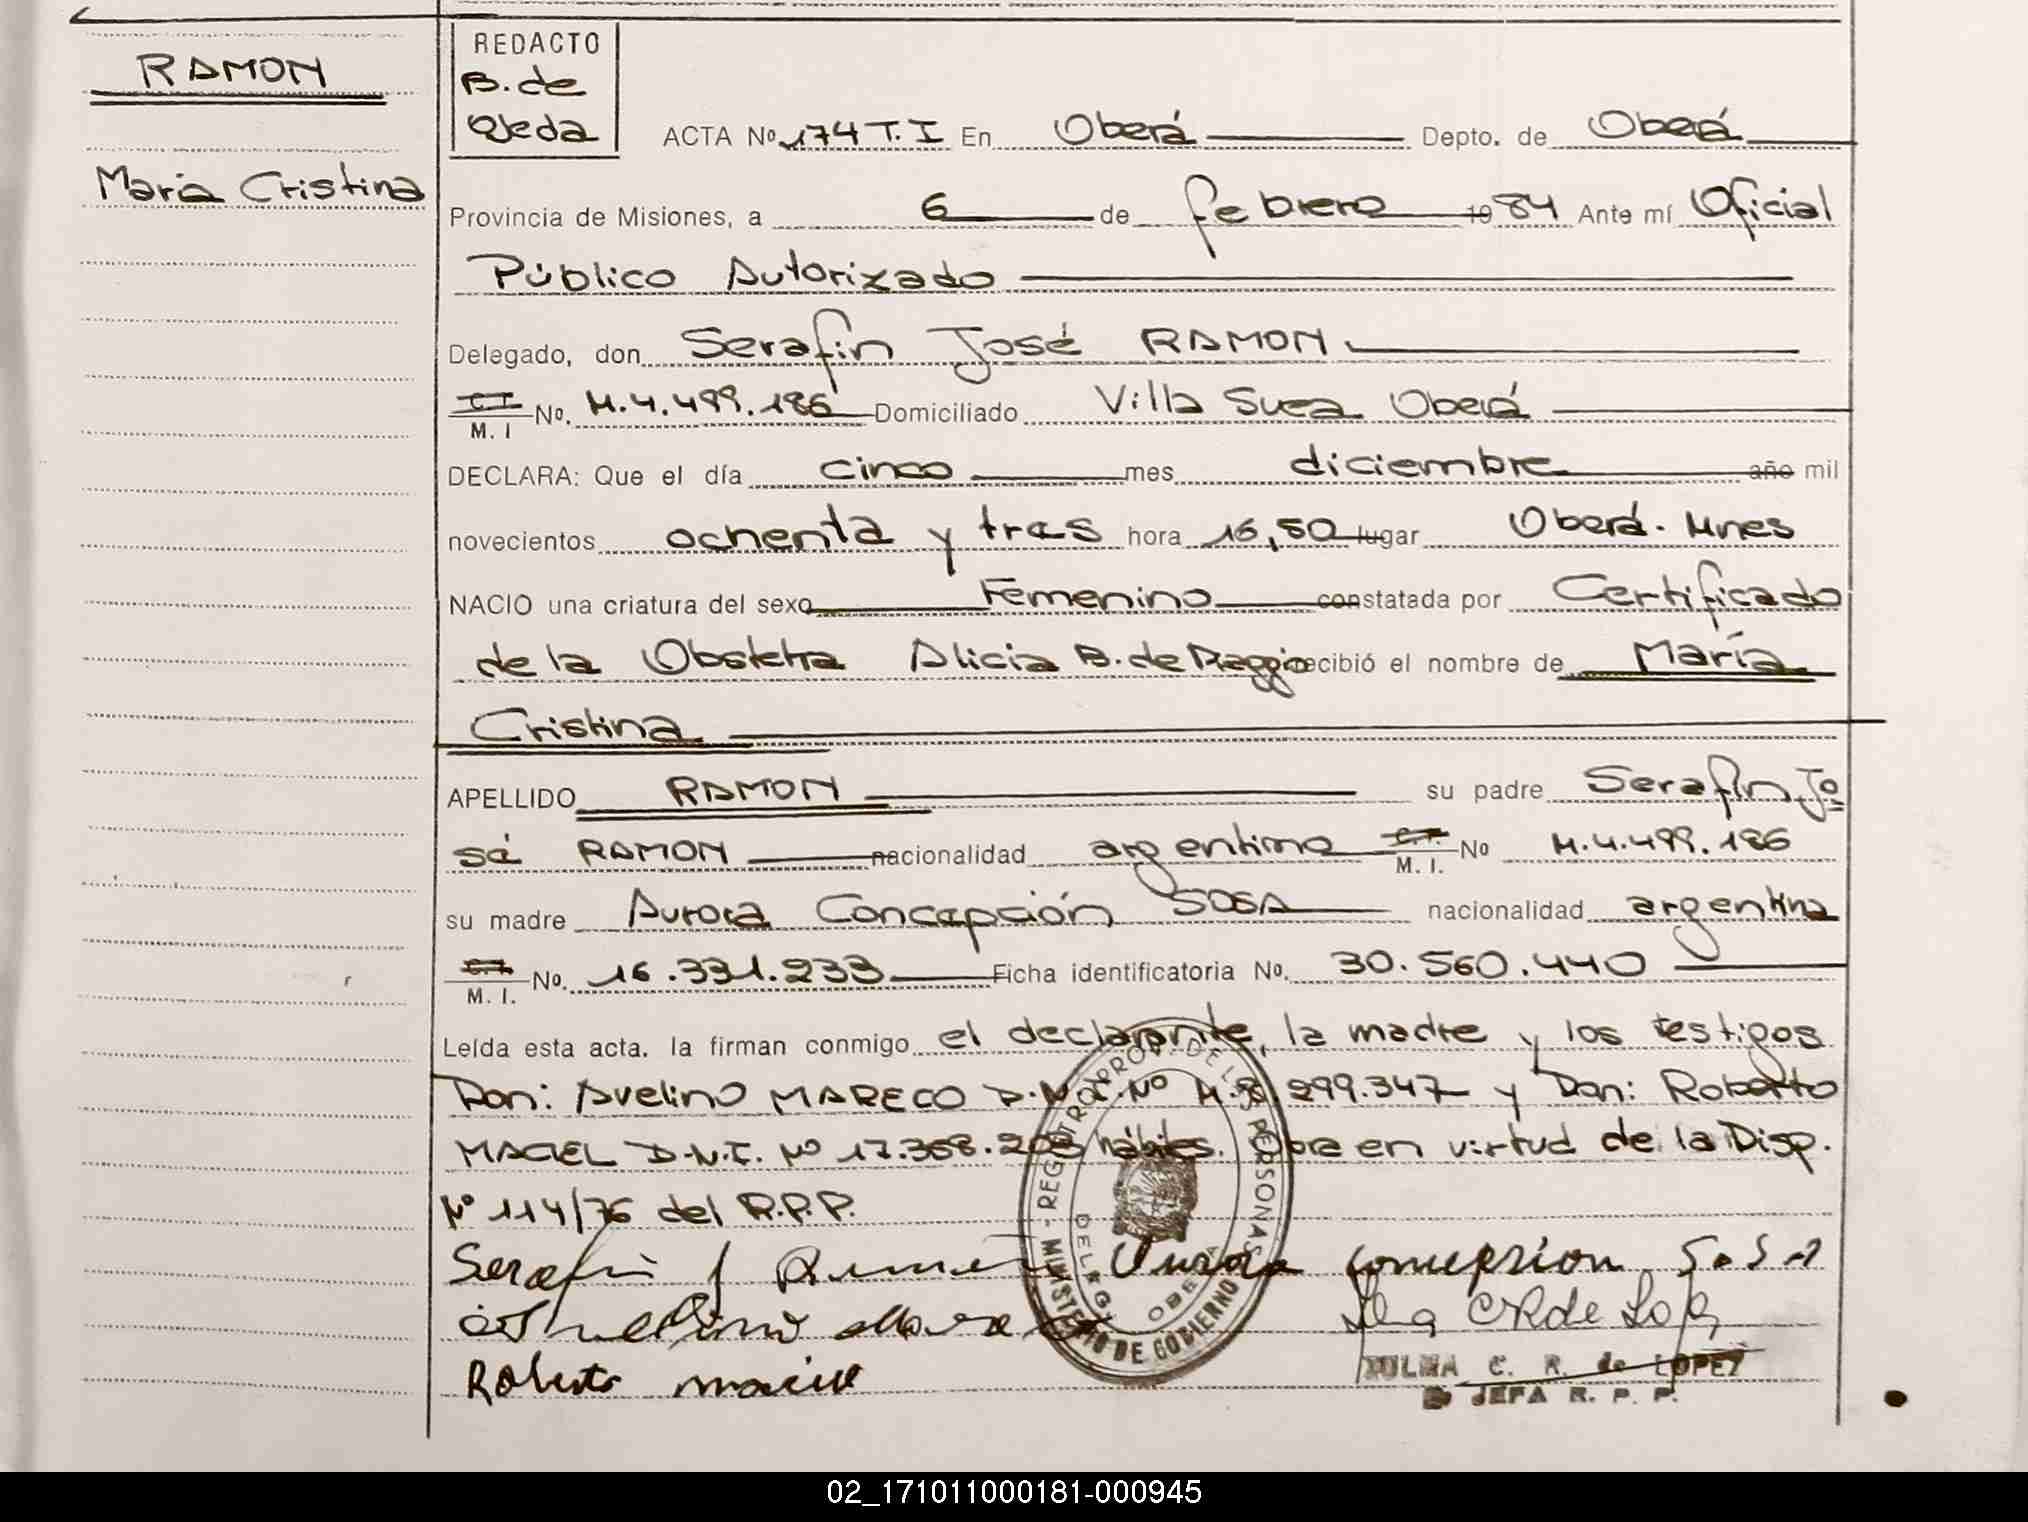 RAMON
María Cristina
REDACTO
B. de
Ojeda
ACTA Nº 174 T. I En Oberá Depto. de Oberá
Provincia de Misiones, a 6 de febrero 1984 Ante mí Oficial
Público Autorizado
Delegado, don Serafín José RAMON
C.I. M. I No. M.4.499.186 Domiciliado Villa Suea Oberá
DECLARA: Que el día cinco mes diciembre año mil
novecientos ochenta y tres hora 16,50 lugar Oberá. Mnes
NACIO una criatura del sexo Femenino constatada por Certificado
de la Obstetra Alicia B. de Maggio recibió el nombre de María
Cristina
APELLIDO RAMON su padre Serafín Jo
sé RAMON nacionalidad argentina C.I. M. I. No M.4.499.186
su madre Aurora Concepción SOSA nacionalidad argentina
C.I. M. I. No. 16.331.233 Ficha identificatoria No. 30.560.440
Leída esta acta, la firman conmigo el declarante, la madre y los testigos
Don: Avelino MARECO D.N.I. Nº M. 299.347 y Don: Roberto
MACIEL D.N.I. Nº 17.368.203 hábiles. Obra en virtud de la Disp.
Nº 114/76 del R.P.P.
Serafin J Ramon Aurora Concepcion Sosa
Avelino Mareco
Roberto Maciel
ZULMA C. R. de LOPEZ
JEFA R. P. P.
MINISTERIO DE GOBIERNO - REGISTRO PROV. DE LAS PERSONAS
DELEG. OBERA
02_171011000181-000945